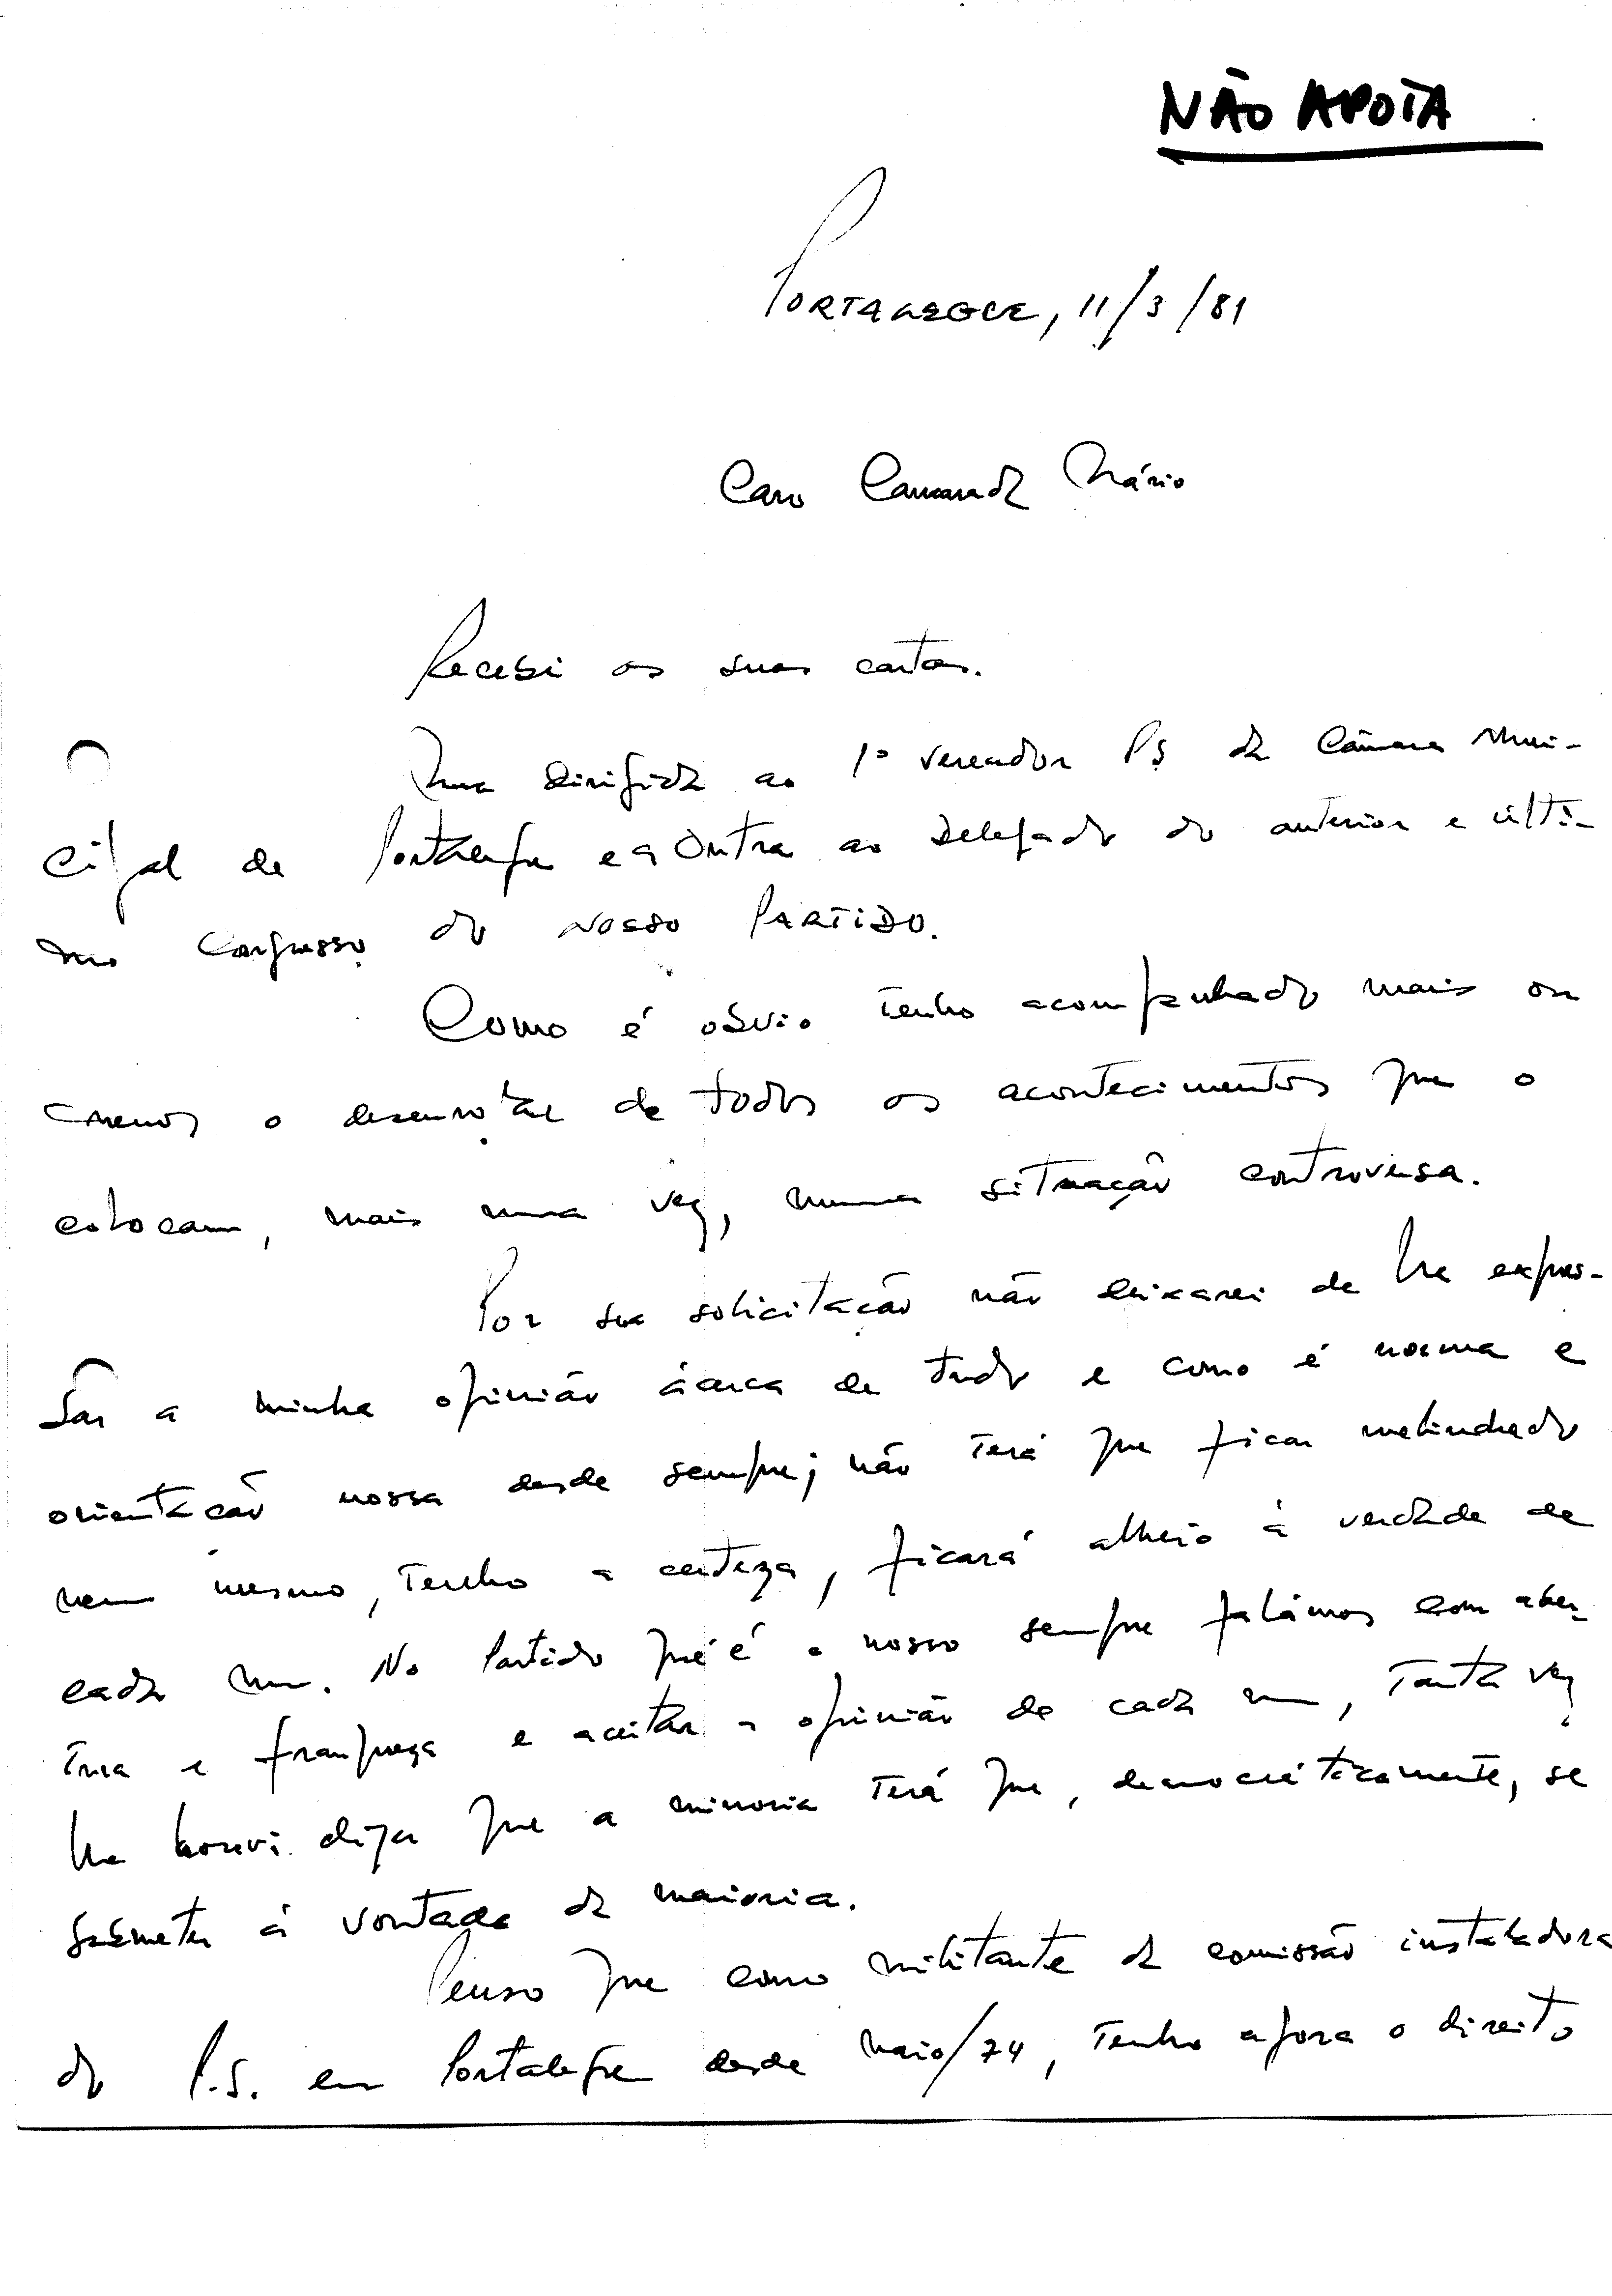 NÃO APOIA
PORTALEGRE, 11/3/81
Caro Camarada Mário
Recebi as suas cartas.
Uma dirigida ao 1º vereador PS da Câmara Muni-
cipal de Portalegre e a outra ao Delegado do anterior e últi-
mo Congresso do nosso PARTIDO.
Como é obvio tenho acompanhado mais ou
menos o desenrolar de todos os acontecimentos que o
colocam, mais uma vez, numa situação controversa.
Por sua solicitação não deixarei de lhe expres-
sar a minha opinião ácerca de tudo e como é norma e
orientação nossa desde sempre; não terá que ficar melindrado
nem mesmo, tenho a certeza, ficará alheio à verdade de
cada um. No Partido que é o nosso sempre falámos com aber-
tura e franqueza e aceitar a opinião de cada um, tanta vez
lhe houvi dizer que a minoria terá que, democráticamente, se
submeter à vontade da maioria.
Penso que como militante da comissão instaladora
do P.S. em Portalegre desde Maio/74, tenho agora o direito